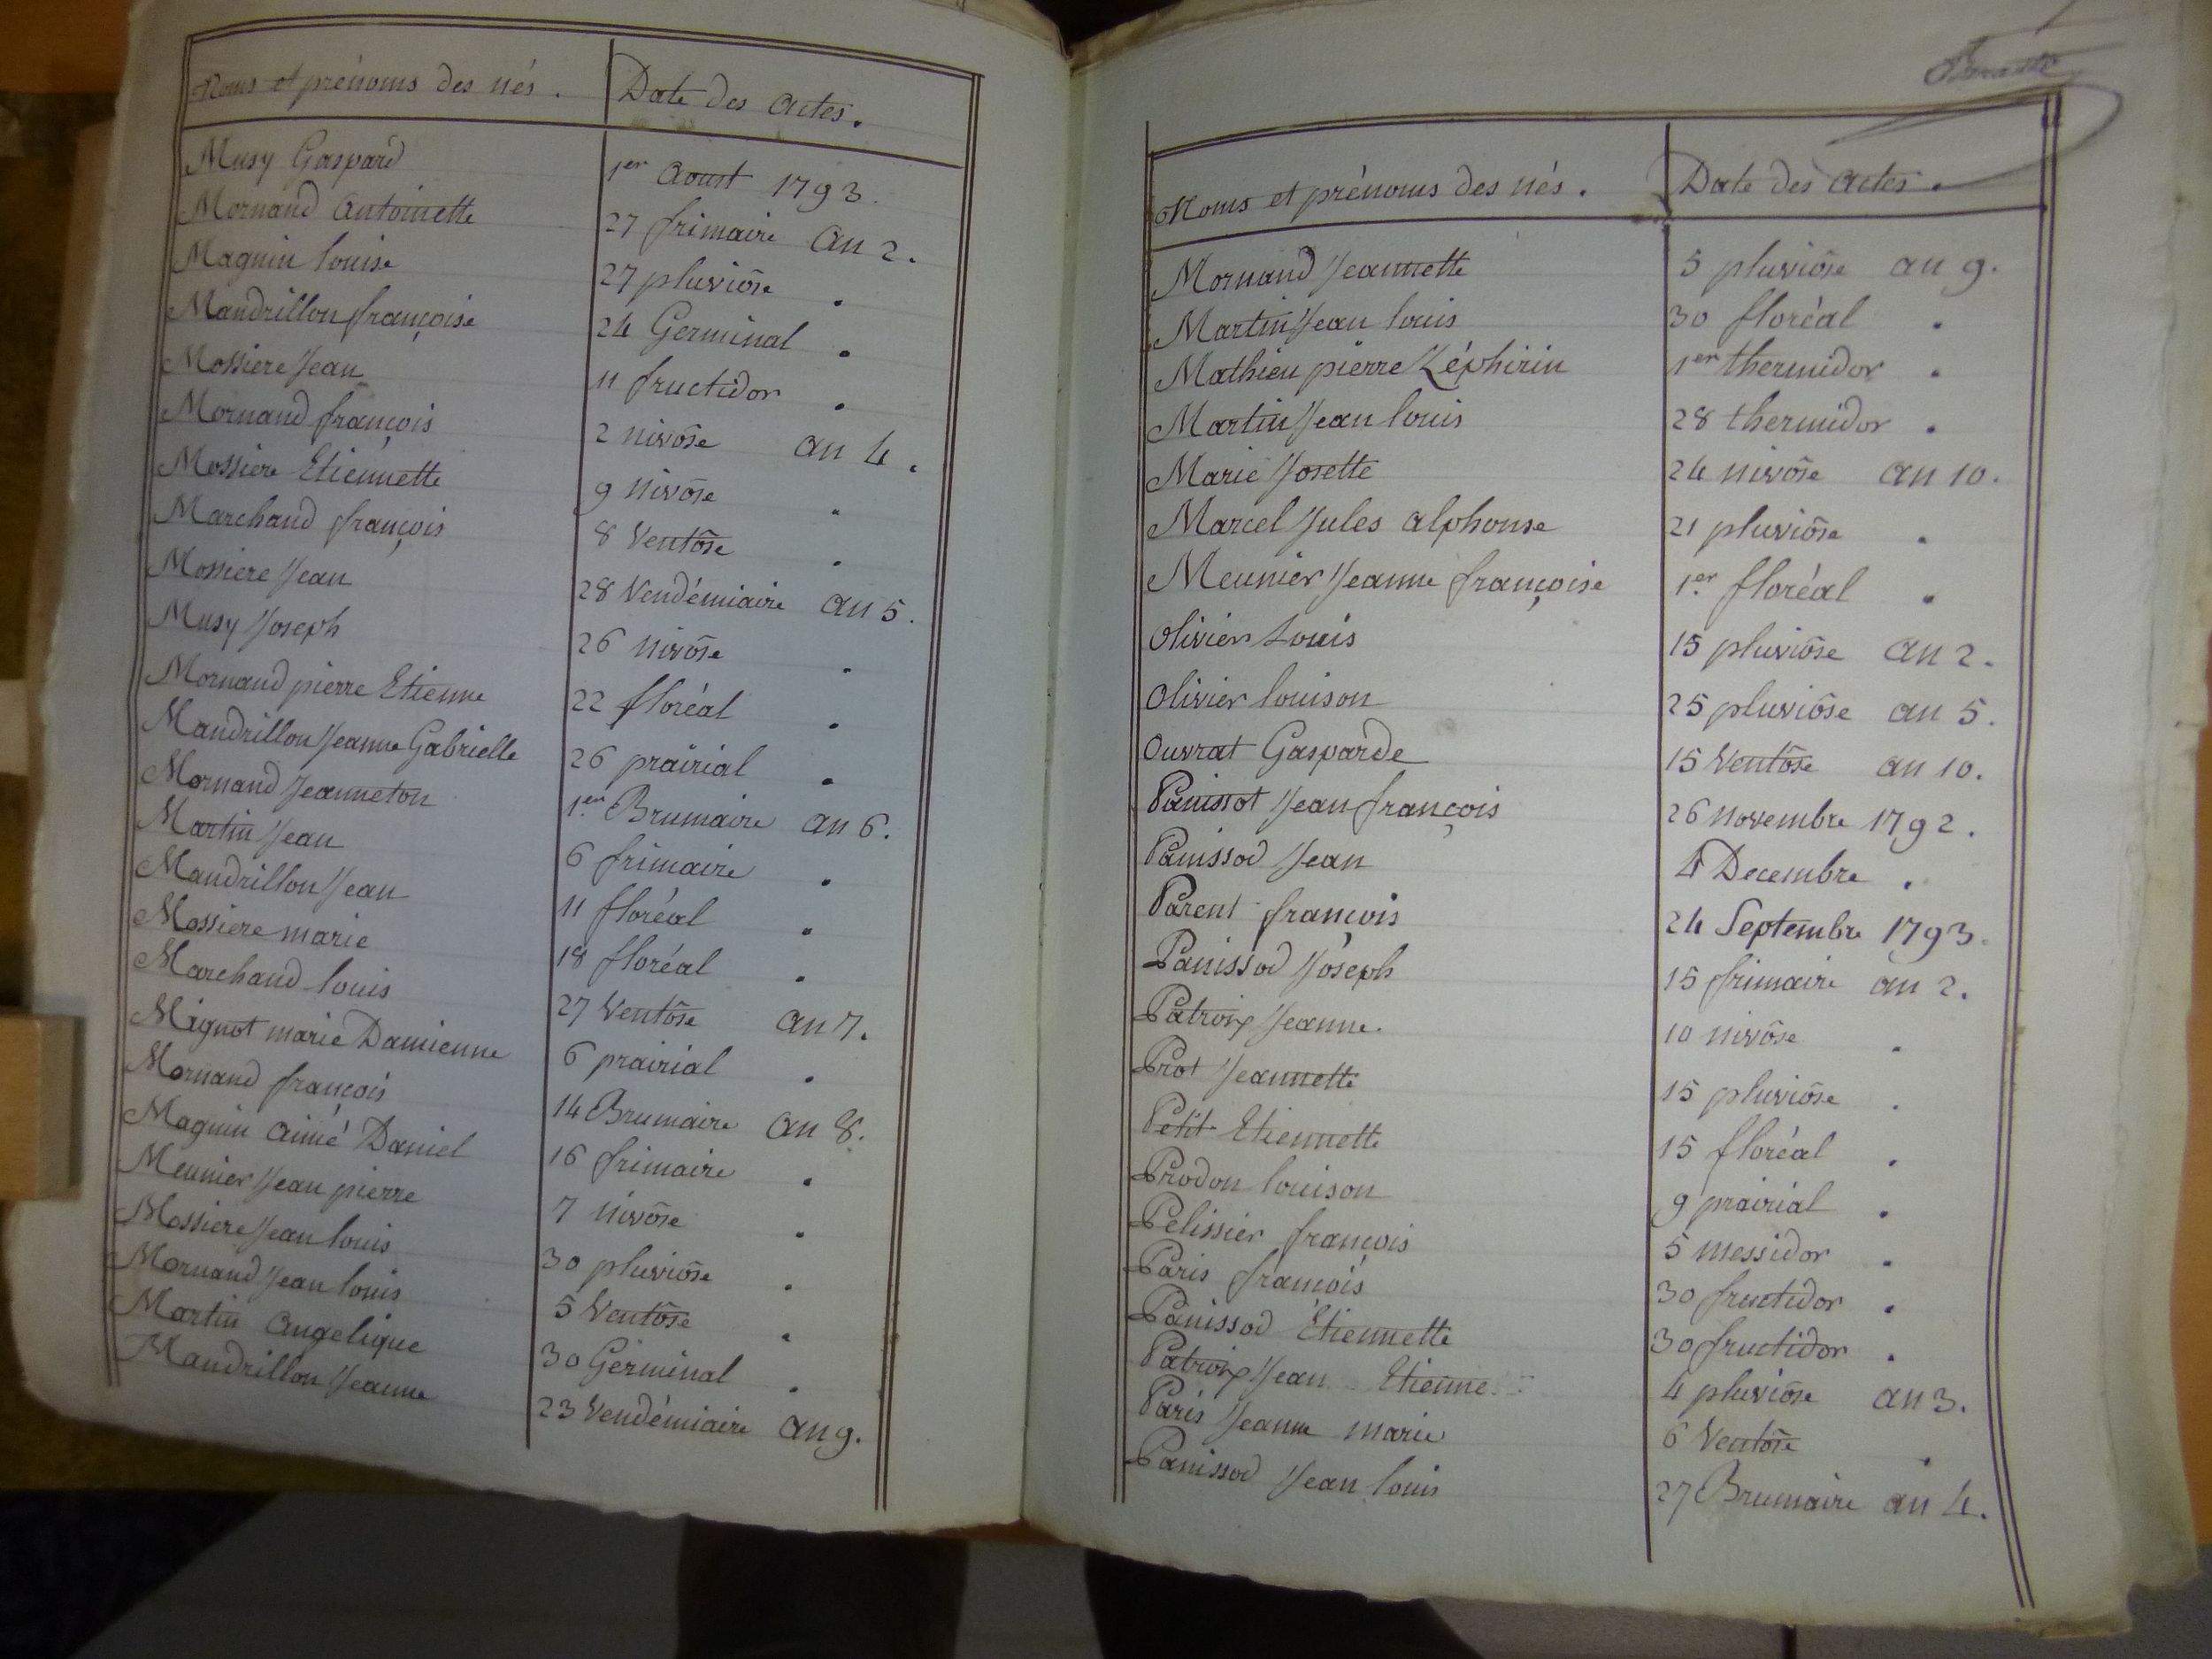 Noms et prénoms des nés. Date des actes.
Musy Gaspard 1er Aoust 1793.
Mornand Antoinette 27 frimaire an 2.
Magnin louise 27 pluviôse .
Mandrillon françoise 24 Germinal .
Mossiere Jean 11 fructidor .
Mornand françois 2 nivôse an 4.
Mossiere Etiennette 9 nivôse .
Marchand françois 8 Ventôse .
Mossiere Jean 28 Vendémiaire an 5.
Musy Joseph 26 nivôse .
Mornand pierre Etienne 22 floréal .
Mandrillon Jeanne Gabrielle 26 prairial .
Mornand Jeanneton 1er Brumaire an 6.
Martin Jean 6 frimaire .
Mandrillon Jean 11 floréal .
Mossiere marie 18 floréal .
Marchand louis 27 Ventôse an 7.
Mignot marie Damienne 6 prairial .
Mornand françois 14 Brumaire an 8.
Magnin aimé Daniel 16 frimaire .
Meunier Jean pierre 7 nivôse .
Mossiere Jean louis 30 pluviôse .
Mornand Jean louis 5 Ventôse .
Martin Angelique 30 Germinal .
Mandrillon Jeanne 23 Vendémiaire an 9.
Noms et prénoms des nés. Date des actes.
Mornand Jeannette 5 pluviôse an 9.
Martin Jean louis 30 floréal .
Mathieu pierre Zéphirin 1er thermidor .
Martin Jean louis 28 thermidor .
Marie Josette 24 nivôse an 10.
Marcel Jules alphonse 21 pluviôse .
Meunier Jeanne françoise 1er floréal .
Olivier Louis 15 pluviôse an 2.
Olivier louison 25 pluviôse an 5.
Ouvrat Gasparde 15 Ventôse an 10.
Panissot Jean françois 26 novembre 1792.
Panissod Jean 4 Decembre .
Parent françois 24 Septembre 1793.
Panissod Joseph 15 frimaire an 2.
Patroix Jeanne 10 nivôse .
Prot Jeannette 15 pluviôse .
Petit Etiennette 15 floréal .
Prodon louison 9 prairial .
Pelissier françois 5 messidor .
Paris françois 30 fructidor .
Panissod Etiennette 30 fructidor .
Patroix Jean Etienne 4 pluviôse an 3.
Paris Jeanne marie 6 Ventôse .
Panissod Jean louis 27 Brumaire an 4.